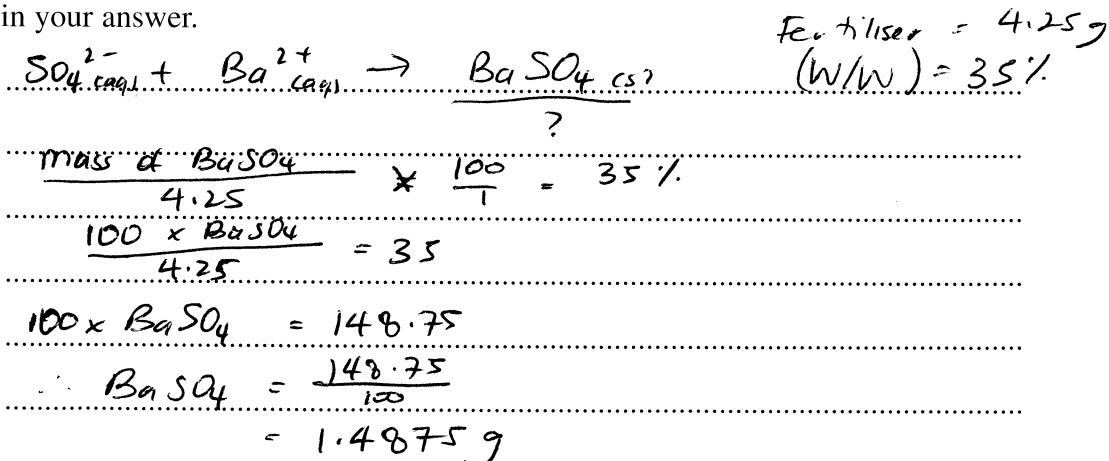 in your answer.
Fertiliser = 4.25 g
(W/W) = 35%
SO₄²⁻(aq) + Ba²⁺(aq) → BaSO₄ (s)
?
mass of BaSO₄ / 4.25 × 100/1 = 35 %.
100 × BaSO₄ / 4.25 = 35
100 × BaSO₄ = 148.75
∴ BaSO₄ = 148.75 / 100
= 1.4875 g